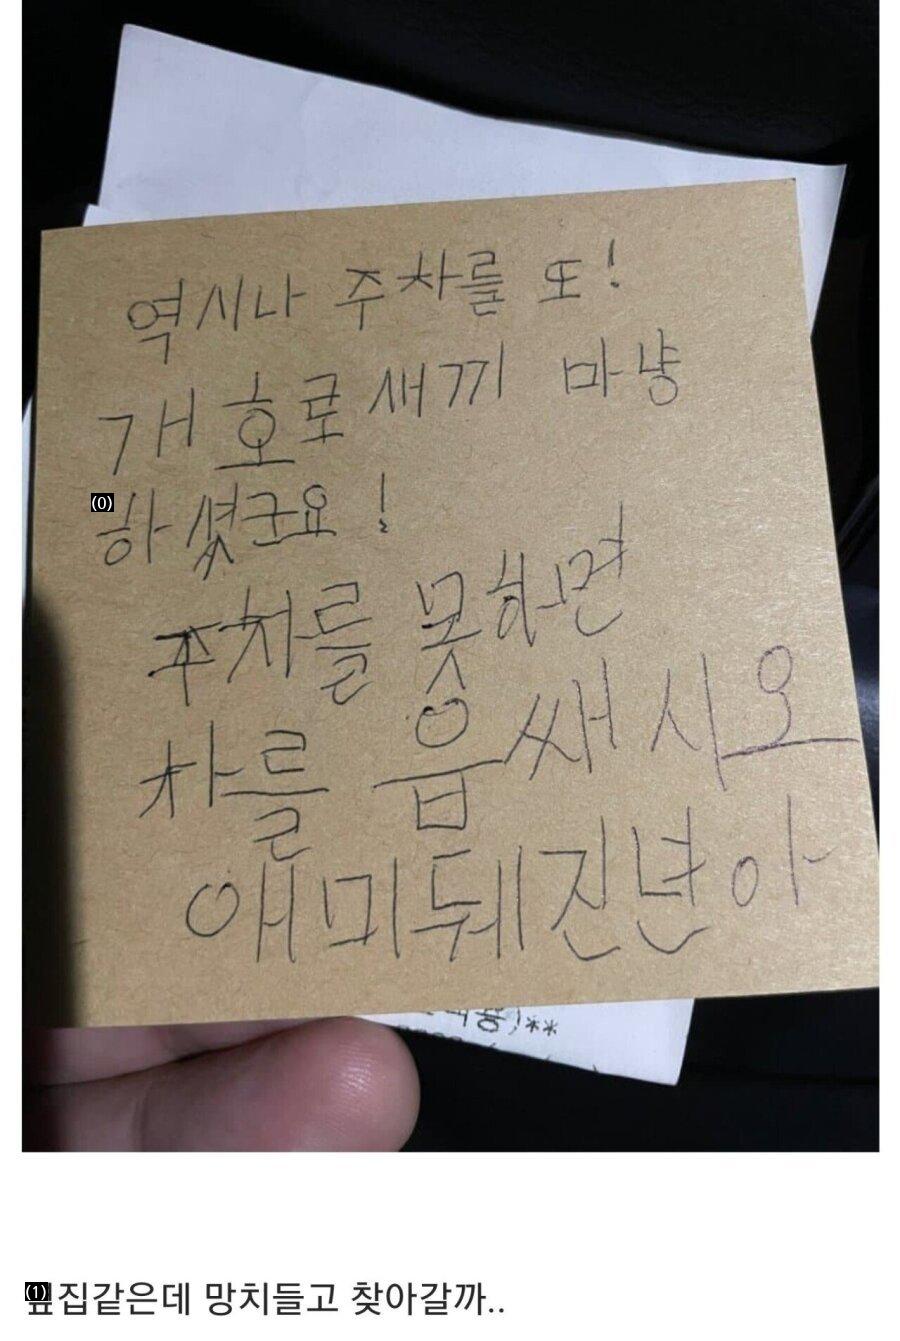 역시나 주차를 또!
개호로새끼 마냥
(0)
하셨군요!
주차를 못하면
차를 읍쌔시오
애미뒈진년아
**
(1)
옆집같은데 망치들고 찾아갈까..